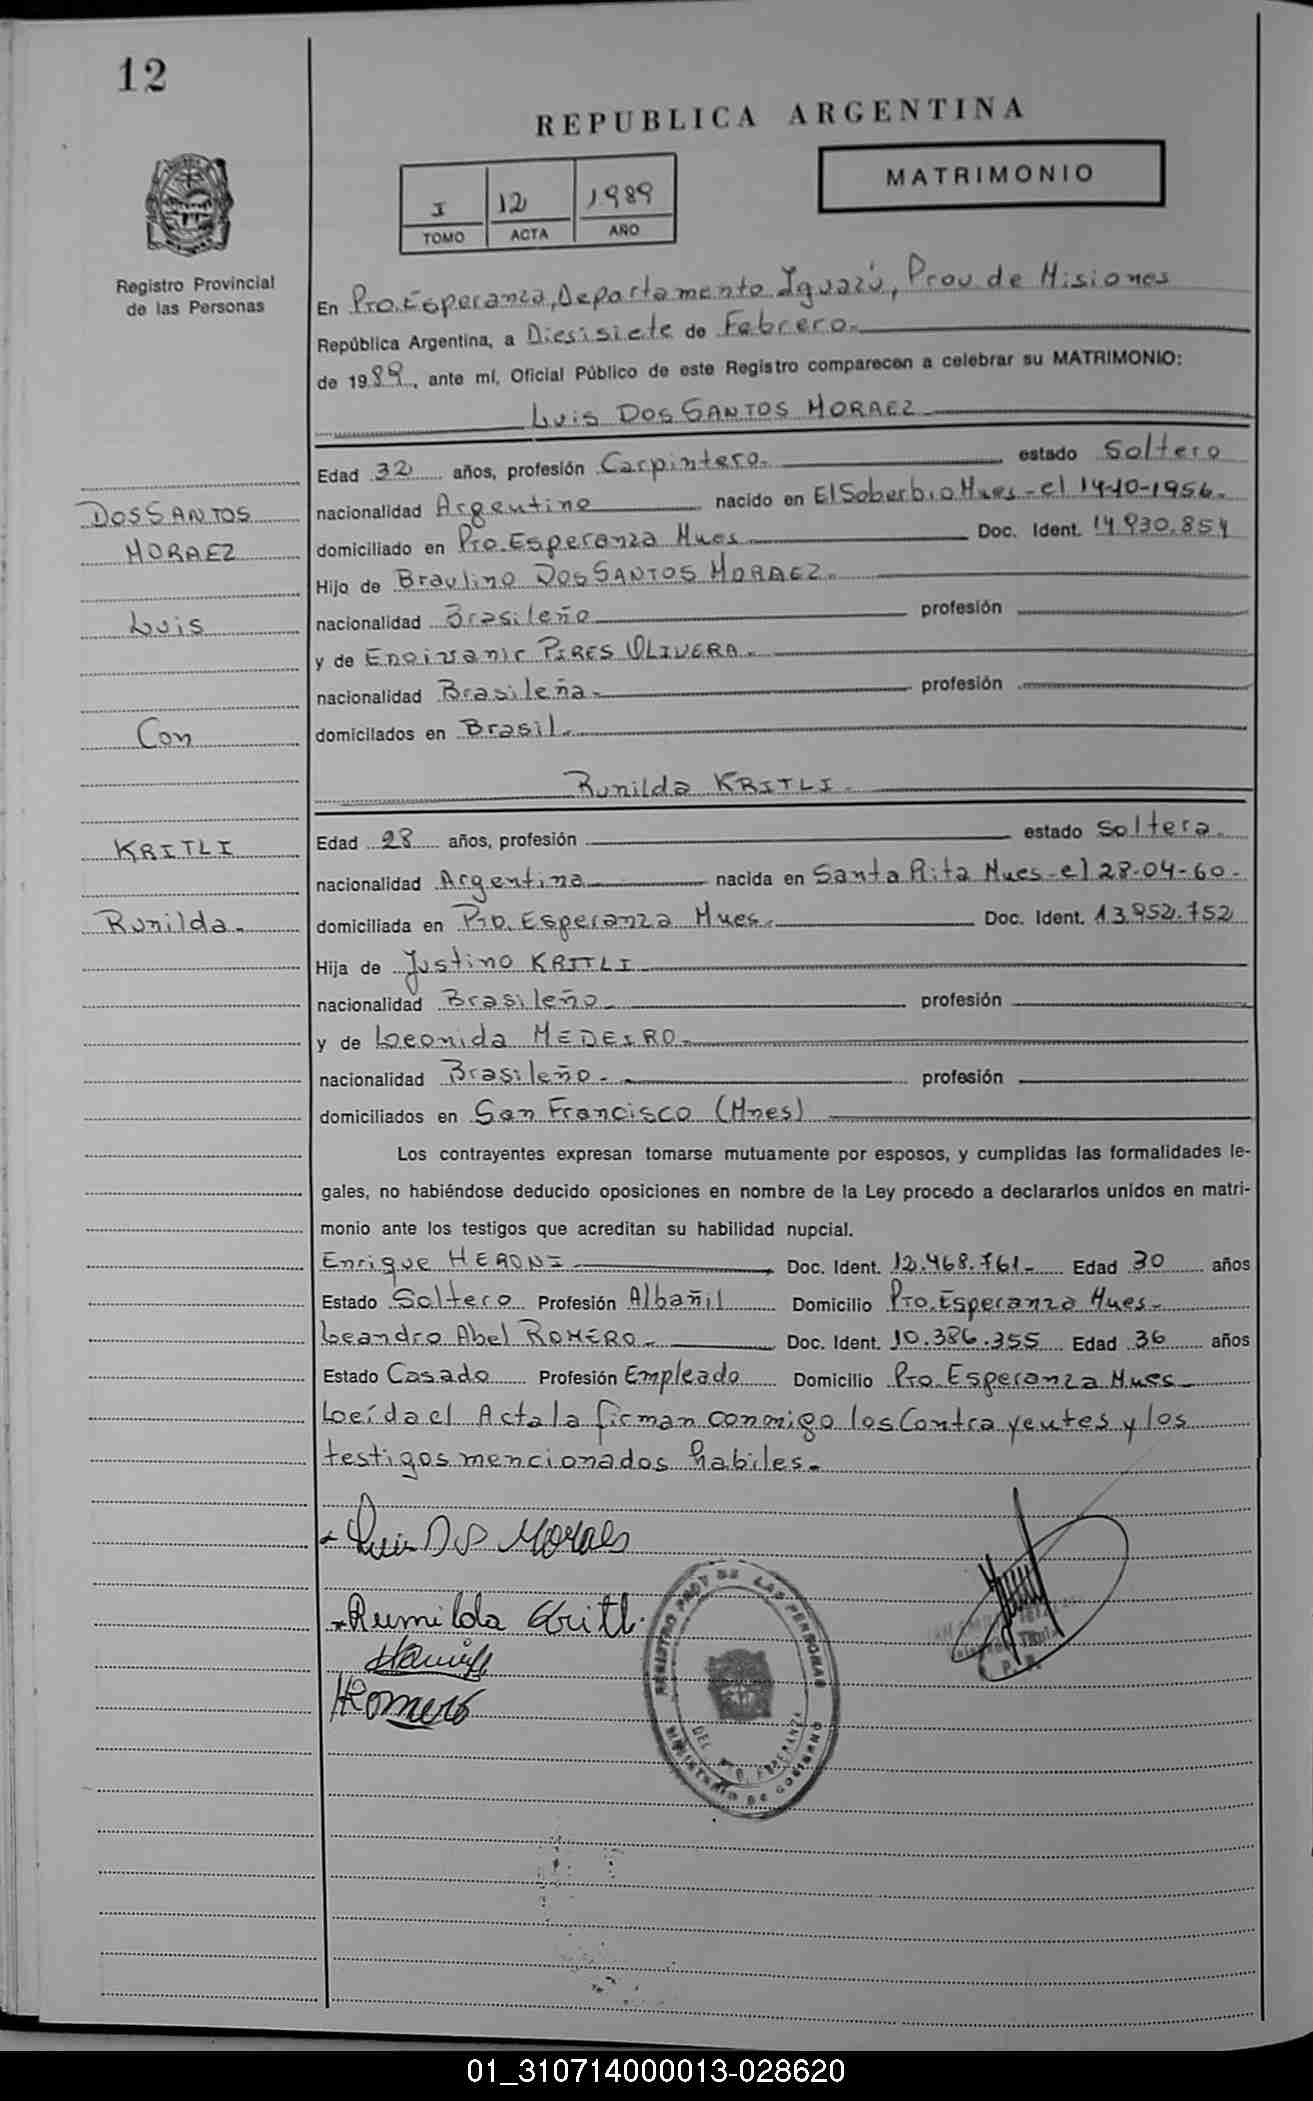 12
REPUBLICA ARGENTINA
MATRIMONIO
I 12 1989
TOMO ACTA AÑO
Registro Provincial
de las Personas
En Pto. Esperanza, Departamento Iguazú, Prov de Misiones
República Argentina, a Diesisiete de Febrero.
de 1989, ante mí, Oficial Público de este Registro comparecen a celebrar su MATRIMONIO:
Luis DOS SANTOS MORAEZ
Edad 32 años, profesión Carpintero. estado Soltero
nacionalidad Argentino nacido en El Soberbio Mnes - el 14-10-1956.
domiciliado en Pto. Esperanza Mnes Doc. Ident. 14.930.854
Hijo de Braulino DOS SANTOS MORAEZ.
nacionalidad Brasileño profesión
y de PIRES OLIVERA.
nacionalidad Brasileña. profesión
domiciliados en Brasil.
DOS SANTOS
MORAEZ
Luis
Con
KRITLI
Rumilda.
Rumilda KRITLI.
Edad 28 años, profesión estado Soltera.
nacionalidad Argentina nacida en Santa Rita Mnes - el 28-04-60.
domiciliada en Pto. Esperanza Mnes. Doc. Ident. 13.952.752
Hija de Justino KRITLI
nacionalidad Brasileño profesión
y de Leonida MEDEIRO.
nacionalidad Brasileño. profesión
domiciliados en San Francisco (Mnes)
Los contrayentes expresan tomarse mutuamente por esposos, y cumplidas las formalidades le-
gales, no habiéndose deducido oposiciones en nombre de la Ley procedo a declararlos unidos en matri-
monio ante los testigos que acreditan su habilidad nupcial.
Enrique HERONI Doc. Ident. 12.468.761. Edad 30 años
Estado Soltero Profesión Albañil Domicilio Pto. Esperanza Mnes.
Leandro Abel ROMERO. Doc. Ident. 10.386.355 Edad 36 años
Estado Casado Profesión Empleado Domicilio Pto. Esperanza Mnes
Leída el Acta la firman conmigo los Contrayentes y los
testigos mencionados habiles.
Luis D S Moraes
Rumilda Kritli
Romero
REGISTRO PROV DE LAS PERSONAS
DEL PTO. ESPERANZA
MINISTERIO DE GOBIERNO
01_310714000013-028620